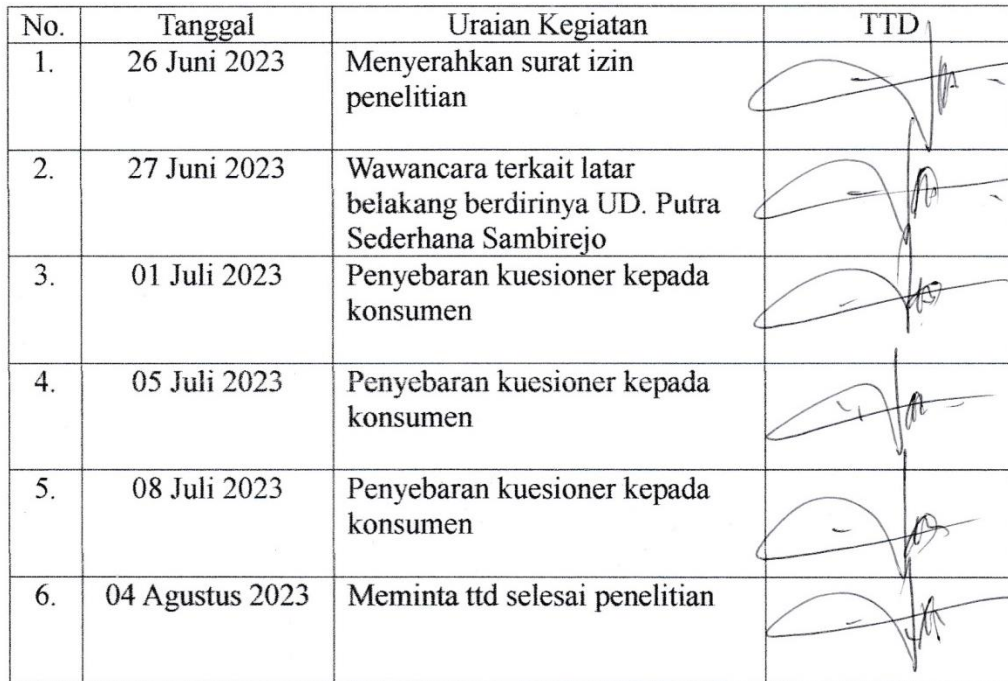 No. Tanggal Uraian Kegiatan TTD
1. 26 Juni 2023 Menyerahkan surat izin
penelitian
2. 27 Juni 2023 Wawancara terkait latar
belakang berdirinya UD. Putra
Sederhana Sambirejo
3. 01 Juli 2023 Penyebaran kuesioner kepada
konsumen
4. 05 Juli 2023 Penyebaran kuesioner kepada
konsumen
5. 08 Juli 2023 Penyebaran kuesioner kepada
konsumen
6. 04 Agustus 2023 Meminta ttd selesai penelitian